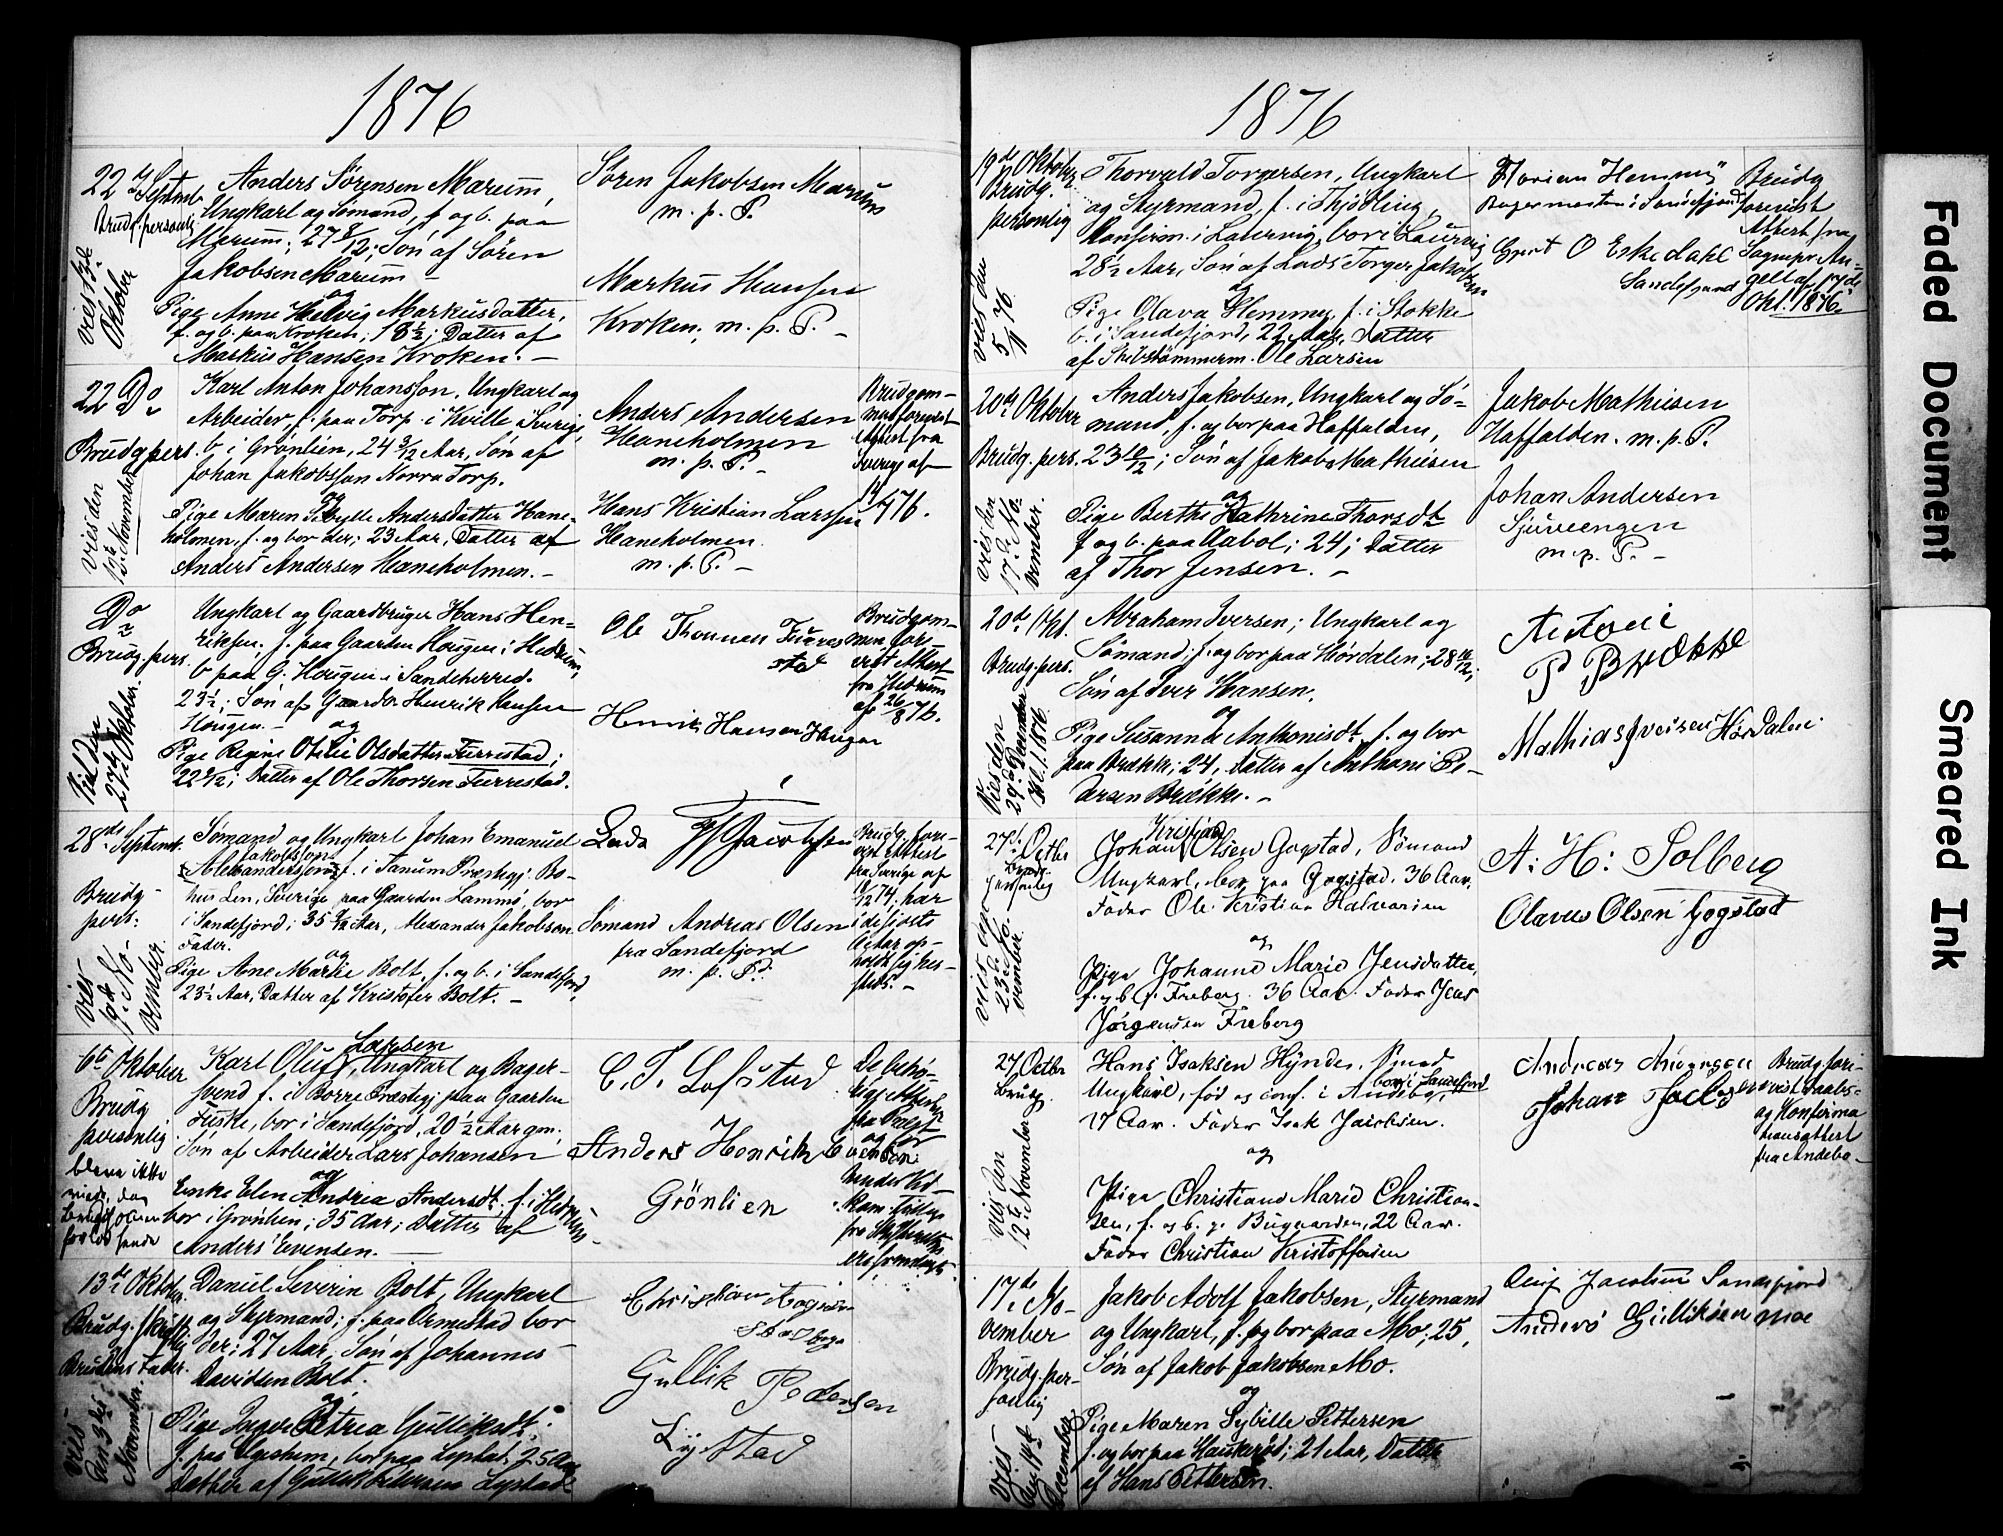 1876
22 Septemb
Brudg. personlig
viet 13de
Oktober
Anders Sørensen Marum,
Ungkarl og Sømand, f. og b. paa
Merum; 27 8/12; Søn af Søren
Jakobsen Marum
og
Pige Anne Helvig Markusdatter,
f. og b. paa Kroken; 18½; Datter af
Markus Hansen Kroken. –
Søren Jakobsen Marum
m. p. P.
Markus Hansen
Kroken, m. p. P. –
22 Do
Brudg. pers.
vies den
November
Karl Anton Johansson, Ungkarl og
Arbeider, f. paa Torp i Kville Sverige,
b. i Grønlien, 24 9/12 Aar, Søn af
Johan Jakobsson Norra Torp.
og
Pige Maren Sibylle Andersdatter Hane-
holmen, f. og bor der; 23 Aar, Datter af
Anders Andersen Haneholmen. –
Anders Andersen
Haneholmen
m. p. P. –
Hans Kristian Larssen
Haneholmen.
m. p. P. –
Brudgom-
men forevist
Attest fra
Sverige af
76.
Do
Brudg. pers.
Oktober.
Ungkarl og Gaardbruger Hans Hen-
riksen, f. paa Gaarden Hougen i Hedrum,
b. paa G. Hougen i Sandeherred.
23½; Søn af Gaardbr Henrik Hansen
Hougen. –
og
Pige Regine Otilie Olsdatter Furrestad;
22 Datter af Ole Thorsen Furrestad.
Ole Thorsen Furre
stad
Henrik Hansen Haugen
Brudgom-
men fore
vist Attest
fra Hedrum
af 26/8 76.
28de Septemb.
Brudg.
pers.
vies
No-
vember.
Sømand og Ungkarl Johan Emanuel
Jakobsson
(Alexandersson) f. i Tanum Præstegj. Bo-
hus Len, Sverige paa Gaarden Lammø, bor
i Sandefjord; 35 Aar, Alexander Jakobson
Fader.
og
Pige Ane Marie Bolt, f. og b. i Sandefjord,
23½ Aar, Datter af Kristofer Bolt. –
Lods Jacobsen
Sømand Andreas Olsen
fra Sandefjord
m. p. P.
Brudg. fore-
vist Attest
fra Sverige af
74, har
i de sidste
Aar op-
holdt sig her-
steds. –
6te Oktober
Brudg.
personlig
bleve ikke
viede, da
Brudfolkene
Larsen
Karl Oluf, Ungkarl og Bager-
svend f. i Borre Præstegj. paa Gaarden
Fuske, bor i Sandefjord, 20½ Aar gm.
Søn af Arbeider Lars Johansen
og
Enke Elen Andrea Andersdt. f. i Hedrum
bor i Grønlien; 35 Aar; Datter af
Anders Evensen. –
C. T. Lofstad
Anders Henrik Evensen
Grønlien
De behø-
13de Oktober.
Brudg. skriftlig
Brudens Fader.
vies
den 9de
November
Daniel Severin Bolt, Ungkarl
og Styrmand; f. paa Ormestad bor
der; 27 Aar, Søn af Johannes
Davidsen Bolt.
og
Pige Inger Petria Gulliksdt.
f. paa bor paa Lystad, 25 Aar
Datter af Gullik Pedersen Lystad.
Christian
Gullik Pedersen
Lystad
1876
19de Oktober
Brudg.
personlig
vies den
5/11 76.
Thorvald Torgersen, Ungkarl
og Styrmand, f. i Thjødling,
Konfirm. i Laurvig, bor i Laurvig
28½ Aar, Søn af Lods Torger Jakobsen
og
Pige Olava Hemmy, f. i Stokke
b. i Sandefjord, 22 Aar, Datter
af Skibstømmerm. Ole Larsen
Florian Hemmy
Bagermester i Sandefjord
O Eskedahl
Sandefjord
Brudg
forevist
Attest fra
Sognepr. An-
gell af 17de
Okt. 1876.
20de Oktober
Brudg. pers.
vies den
17de No-
vember.
Anders Jakobsen, Ungkarl og Sø-
mand, f. og bor paa Haffalden,
23 10/12; Søn af Jakob Mathisen
og
Pige Berthe Kathrine Thorsdt
f. og b. paa Aabol; 24; Datter
af Thor Jensen. –
Jakob Mathisen
Haffalden. m. p. P.
Johan Andersen
Sjuveengen
m. p. P. –
20de Okt.
Brudg. pers.
Vies den
29de December
Kl. 1. 1876.
Abraham Iversen; Ungkarl og
Sømand; f. og bor paa Hørdalen; 28 10/12;
Søn af Iver Hansen.
og
Pige Susanna Anthonisdt., f. og bor
paa Brekke; 24, Datter af Anthoni Pe-
dersen Brække. –
Antoni
P Brække
Mathias Iversen Hørdalen.
27de Octbr
Brudg.
personlig
vies den
23de No-
vember.
Kristian
Johan Olsen Gogstad, Sømand
Ungkarl, bor paa Gogstad. 36 Aar.
Fader Ole Kristian Halvorsen
og
Pige Johanne Marie Jensdatter,
f. og b. p. Freberg. 36 Aar. Fader Jens
Jørgensen Freberg
A. H. Solberg
Olaves Olsen Gogstad
27 Octbr
Brudg.
vies den
12te November
Hans Isaksen Hynde, Smed
bor i Sandefjord
Ungkarl, fød og conf. i Andebo,
Aar. Fader Isak Jacobsen.
og
Pige Christiane Marie Christian-
sen, f. og b. p. Bugaarden, 22 Aar.
Fader Christian Kristoffersen
Andreas
Johan
Brudg. fore-
vist Daabs-
og Konfirma
tionsattest
fra Andebo –
17de No-
vember
Brudg. per-
sonlig
vies
den 14de
December
Jakob Adolf Jakobsen, Styrmand
og Ungkarl, f. og bor paa Mo; 25,
Søn af Jakob Jakobsen Mo.
og
Pige Maren Sybille Pettersen
f. og bor paa Haukerød; 21 Aar, Datter
af Hans Pettersen.
Jacobsen Sandefjord
Anders Gulliksen moe
Faded Document
Smeared Ink